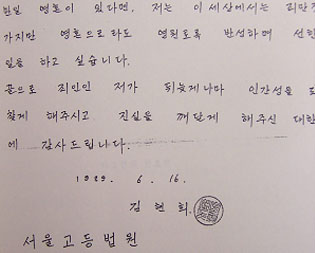 만일 영혼이 있다면, 저는 이 세상에서는 죄만
가지만 영혼으로라도 영원토록 반성하며 선한
일을 하고 싶습니다.
끝으로 죄인인 저가 뒤늦게나마 인간성을 되
찾게 해주시고 진실을 깨닫게 해주신 대한
에 감사드립니다.
1989. 6. 16.
김현희.
서울고등법원